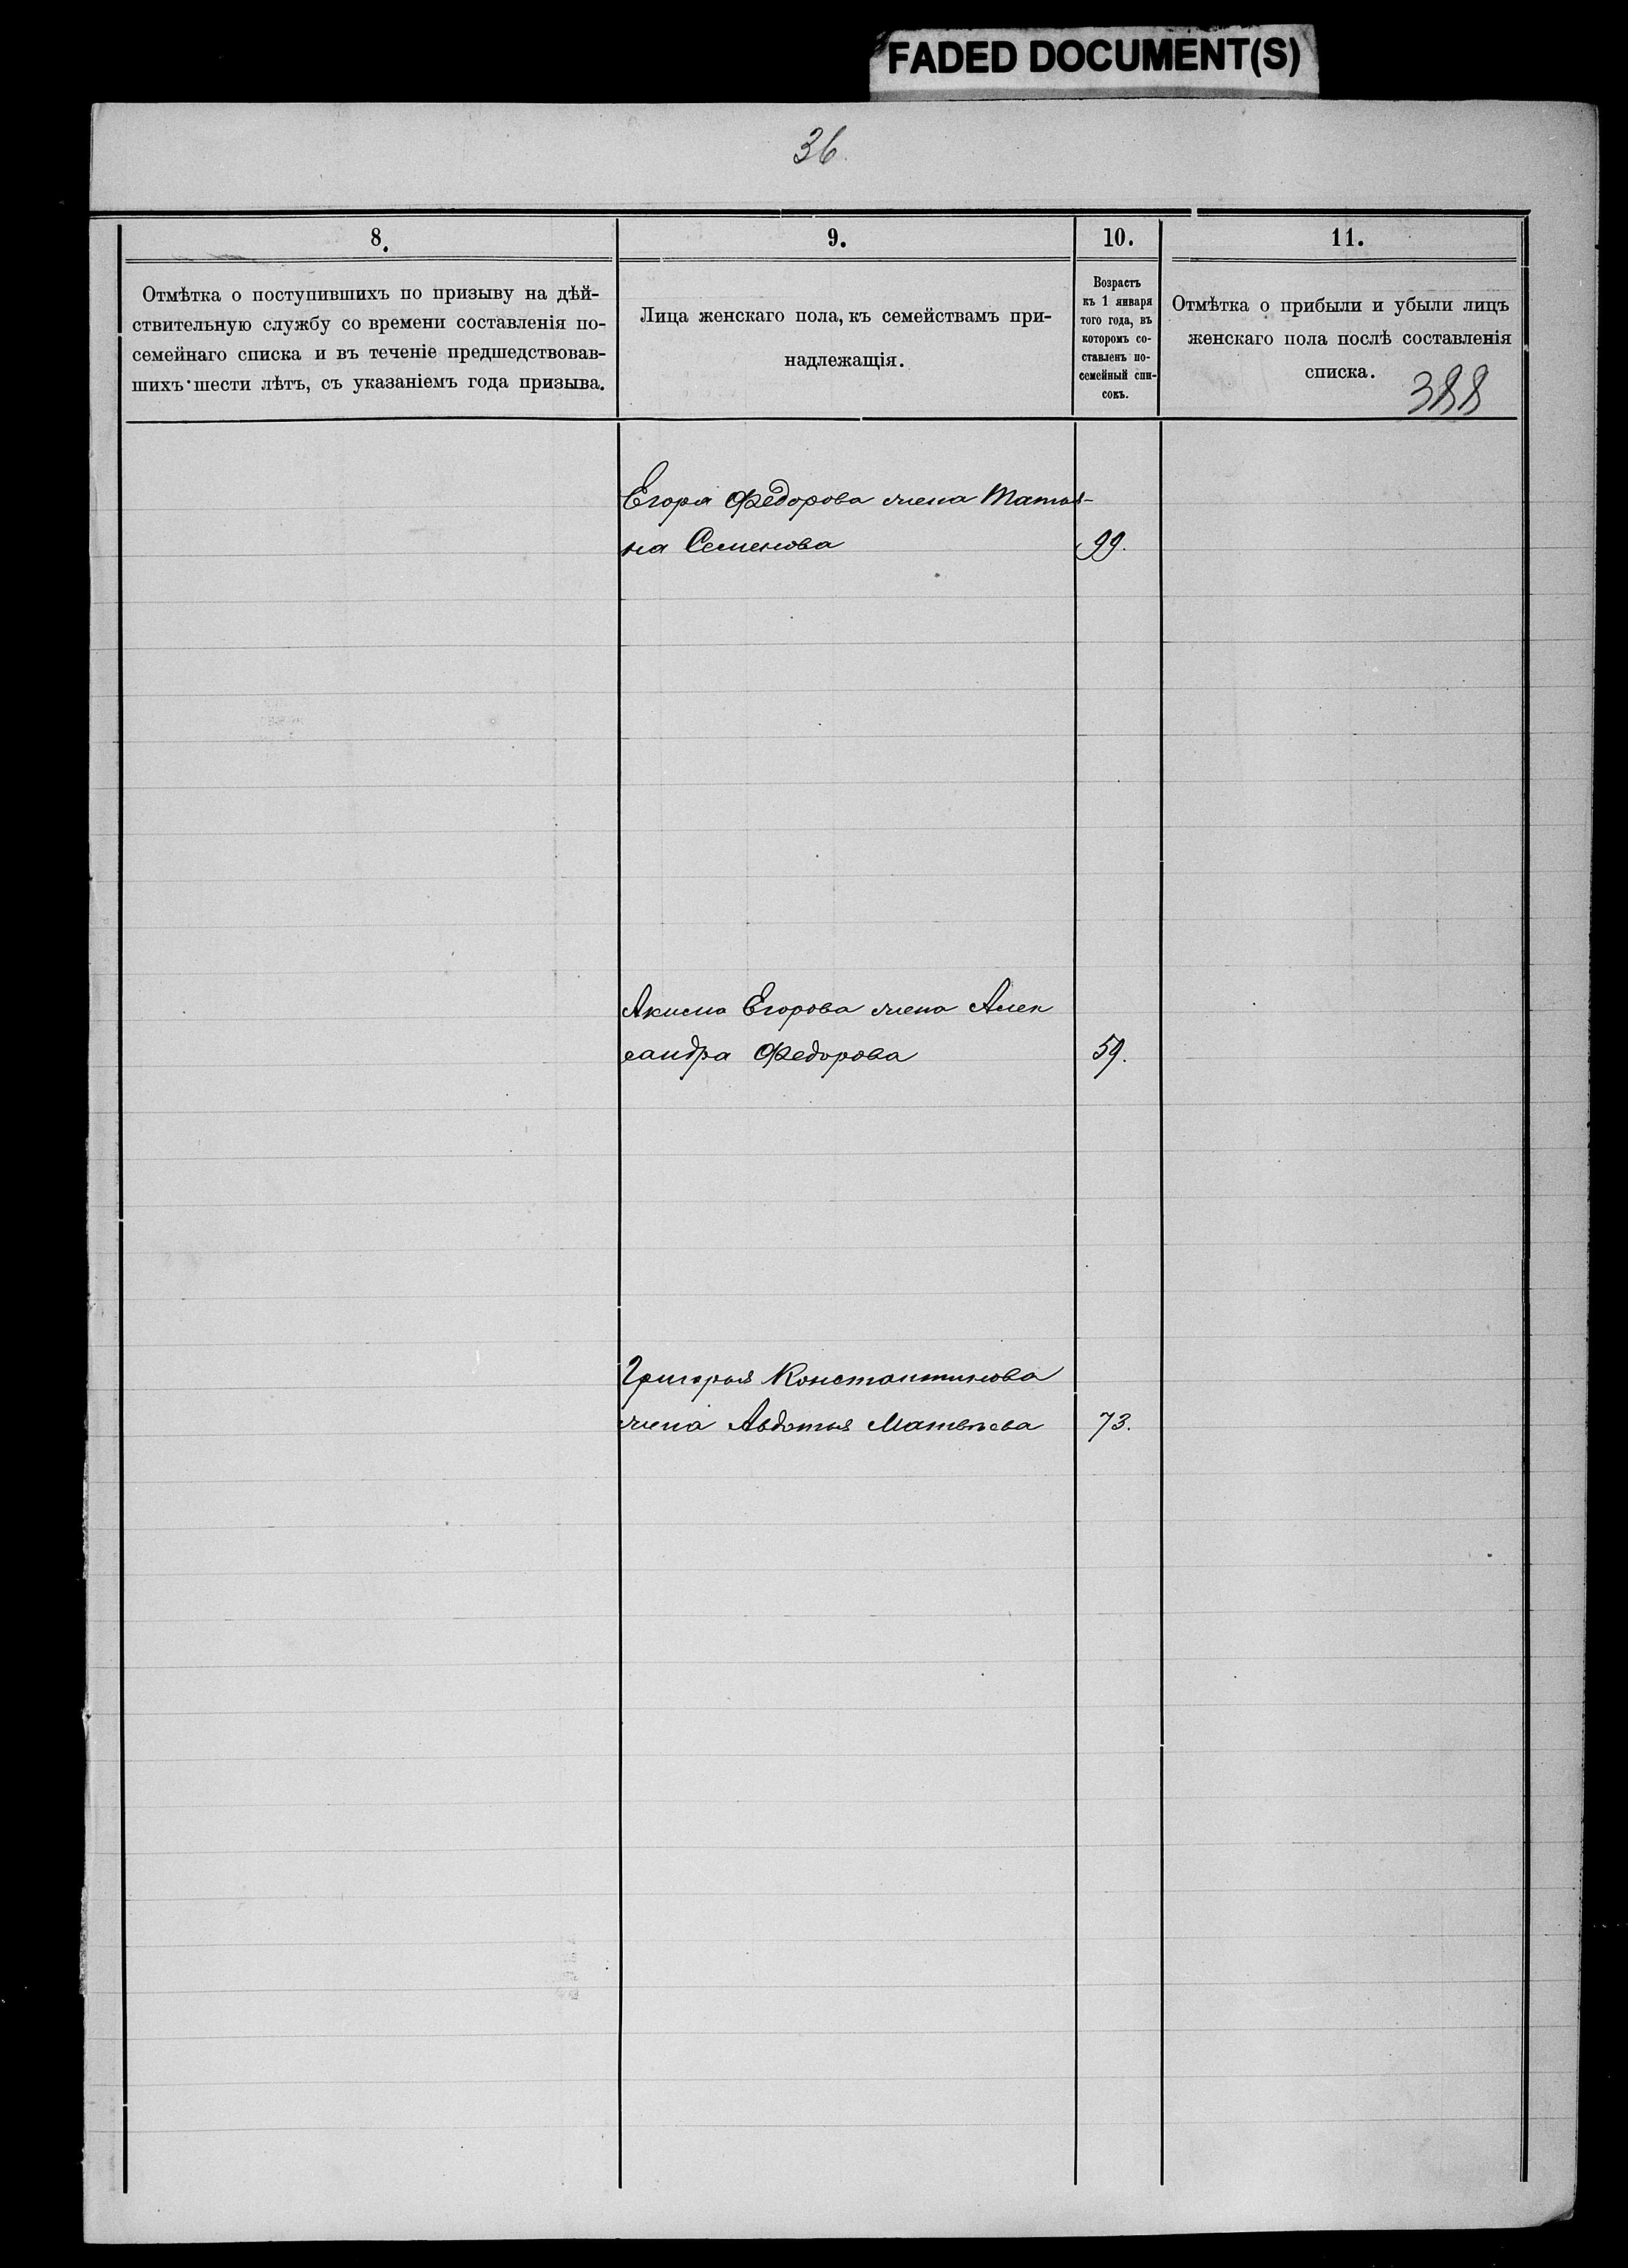 FADED DOCUMENT(S)
36.
8.
Отмѣтка о поступившихъ по призыву на дѣй-
ствительную службу со времени составленія по-
семейнаго списка и въ теченіе предшедствовав-
шихъ шести лѣтъ, съ указаніемъ года призыва.
9.
Лица женскаго пола, къ семействамъ при-
надлежащія.
10.
Возрастъ
къ 1 января
того года, въ
которомъ со-
ставленъ по-
семейный спи-
сокъ.
11.
Отмѣтка о прибыли и убыли лицъ
женскаго пола послѣ составленія
списка.
388
Егора Федорова жена Татья-
на Семенова 99.
Акима Егорова жена Алек
сандра Федорова 59.
Григорья Константинова
жена Авдотья Матвѣева 73.